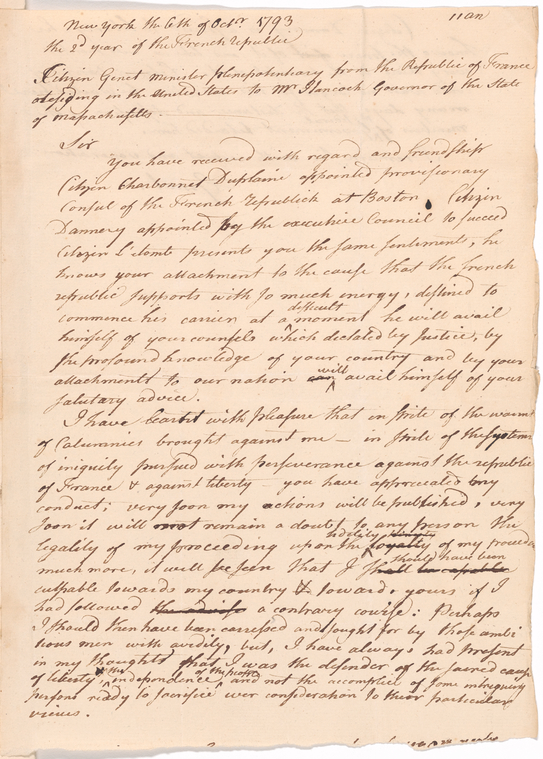 New York the 6th of Octr. 1793
the 2d year of the French Republic
Citizen Genet minister plenepotentiary from the Republic of France
resefding in the United States to Mr Hancock Governor of the State
of Massachusetts.
Sir
You have received with regard and friendship
Citizen Charbonnet Duplaine appointed provisionary
Consul of the French Republick at Boston. Citizen
Dannery appointed by the executive Council to succeed
Citizen L'etomb presents you the same sentiments, he
knows your attachment to the cause that the french
republic supports with so much energy, destined to
commence his carrier at a difficult moment he will avail
himself of your counsels which dictated by Justice, by
the profound knowledge of your country and by your
attachment to our nation will avail himself of your
salutary advice.
I have learnt with pleasure that in spite of the
of Calumnies brought against me — in spite of the system
of iniquity pursued with perseverance against the republic
of France & against liberty — you have appreceated my
conduct; very soon my actions will be published, very
soon it will not remain a doubt to any person the
legality of my proceeding upon the fidelity loyalty of my
much more, it will be seen that I should have been
culpable towards my country & towards yours if I
had followed a contrary course: Perhaps
I should then have been carressed and sought for by those ambi
tious men with avidity, but, I have always had present
in my thoughts that I was the defender of the sacred cause
of liberty & the independence of the people and not the accomplice of some intreguing
persons ready to sacrifice ever consideration to their particular
views.